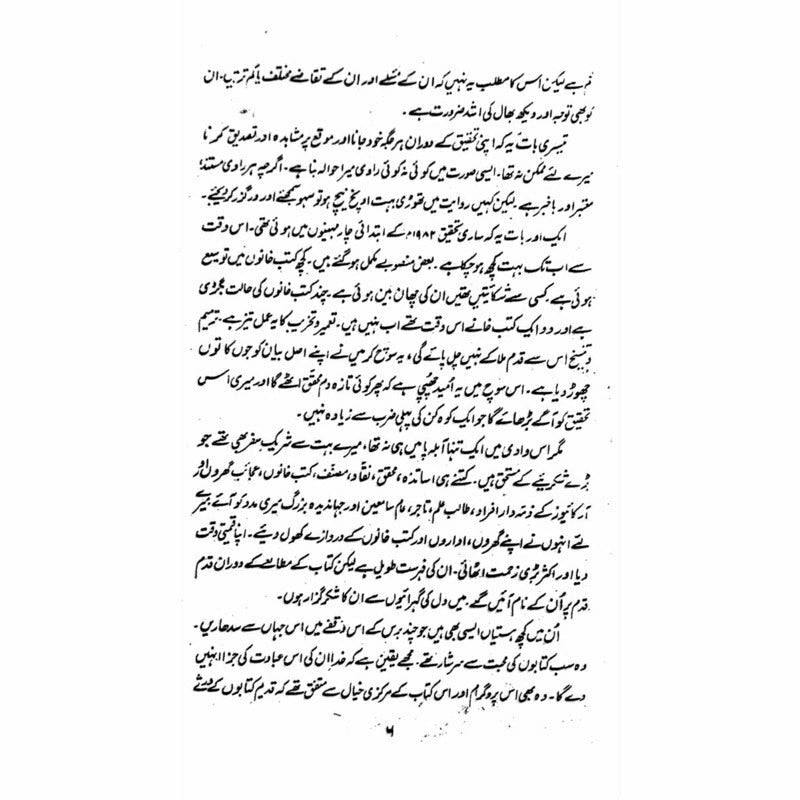 کم ہے لیکن اس کا مطلب یہ نہیں کہ ان کے مسئلے اور ان کے تقاضے مختلف یا کم تر ہیں۔ ان
کو بھی توجہ اور دیکھ بھال کی اشد ضرورت ہے۔
تیسری بات یہ کہ اپنی تحقیق کے دوران ہر جگہ خود جانا اور موقع پر مشاہدہ اور تصدیق کرنا
میرے لئے ممکن نہ تھا۔ ایسی صورت میں کوئی نہ کوئی راوی میرا حوالہ بنا ہے۔ اگرچہ ہر راوی مستند،
معتبر اور باخبر ہے۔ لیکن کہیں روایت میں تھوڑی بہت اونچ نیچ ہو تو سہو سمجھئے اور درگزر کر دیجئے۔
ایک اور بات یہ کہ ساری تحقیق ۱۹۸۲ء کے ابتدائی چار مہینوں میں ہوئی تھی۔ اس وقت
سے اب تک بہت کچھ ہو چکا ہے۔ بعض منصوبے مکمل ہو گئے ہیں۔ کچھ کتب خانوں میں توسیع
ہوئی ہے۔ کسی سے شکایتیں تھیں ان کی چھان بین ہوئی ہے۔ چند کتب خانوں کی حالت بگڑی
ہے اور دو ایک کتب خانے اس وقت تھے اب نہیں ہیں۔ تعمیر و تخریب کا یہ عمل تیز ہے۔ ترمیم
و تنسیخ اس سے قدم ملا کے نہیں چل پائے گی، یہ سوچ کر میں نے اپنے اصل بیان کو جوں کا توں
چھوڑ دیا ہے۔ اس سوچ میں یہ امید چھپی ہے کہ پھر کوئی تازہ دم محقق اٹھے گا اور میری اس
تحقیق کو آگے بڑھائے گا جو ایک کوہ کن کی پہلی ضرب سے زیادہ نہیں۔
مگر اس وادی میں ایک تنہا آبلہ پا میں ہی نہ تھا، میرے بہت سے شریک سفر بھی تھے جو
بڑے شکریئے کے مستحق ہیں۔ کتنے ہی اساتذہ، محقق، نقاد، مصنف، کتب خانوں، عجائب گھروں اور
آرکائیوز کے ذمہ دار افراد، طالب علم، تاجر، عام سامعین اور جہاندیدہ بزرگ میری مدد کو آئے میرے
لئے انہوں نے اپنے گھروں، اداروں اور کتب خانوں کے دروازے کھول دیئے۔ اپنا قیمتی وقت
دیا اور اکثر بڑی زحمت اٹھائی۔ ان کی فہرست طویل ہے لیکن کتاب کے مطالعے کے دوران قدم
قدم پر اُن کے نام آئیں گے۔ میں دل کی گہرائیوں سے ان کا شکر گزار ہوں۔
اُن میں کچھ ہستیاں ایسی بھی ہیں جو چند برس کے اس وقفے میں اس جہاں سے سدھاریں۔
وہ سب کتابوں کی محبت سے سرشار تھے۔ مجھے یقین ہے کہ خدا ان کی اس عبادت کی جزا انہیں
دے گا۔ وہ بھی اس پروگرام اور اس کتاب کے مرکزی خیال سے متفق تھے کہ قدیم کتابوں کے ورثے
۶